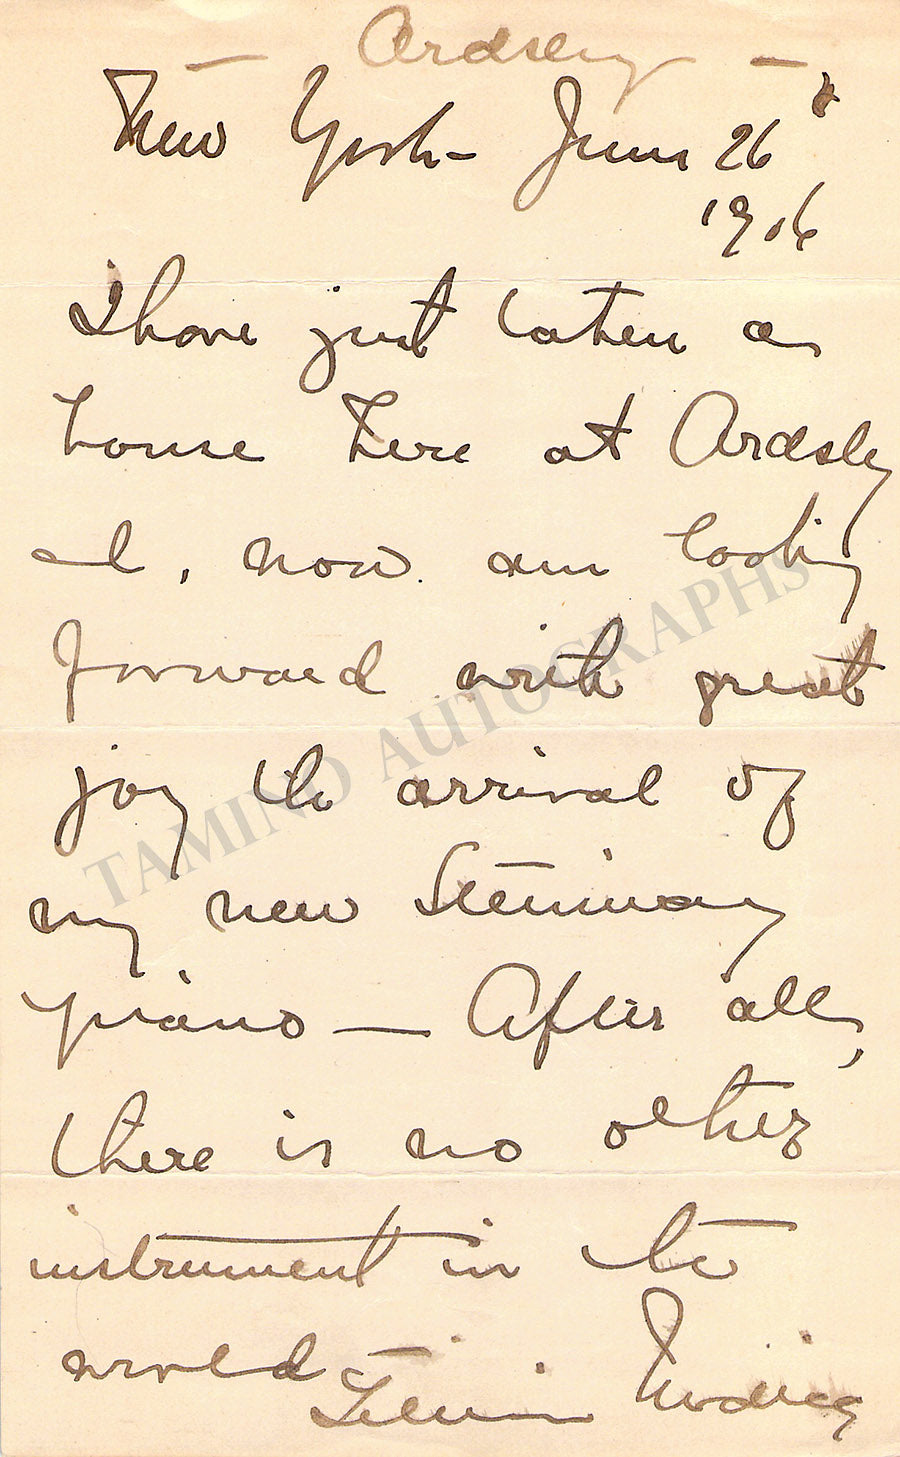 — Ardsley —
New York - June 26th
1906
I have just taken a
house here at Ardsley
I, now am looking
forward with great
joy the arrival of
my new Steinway
piano — After all,
there is no other
instrument in the
world —
Lillian Nordica
TAMINO AUTOGRAPHS